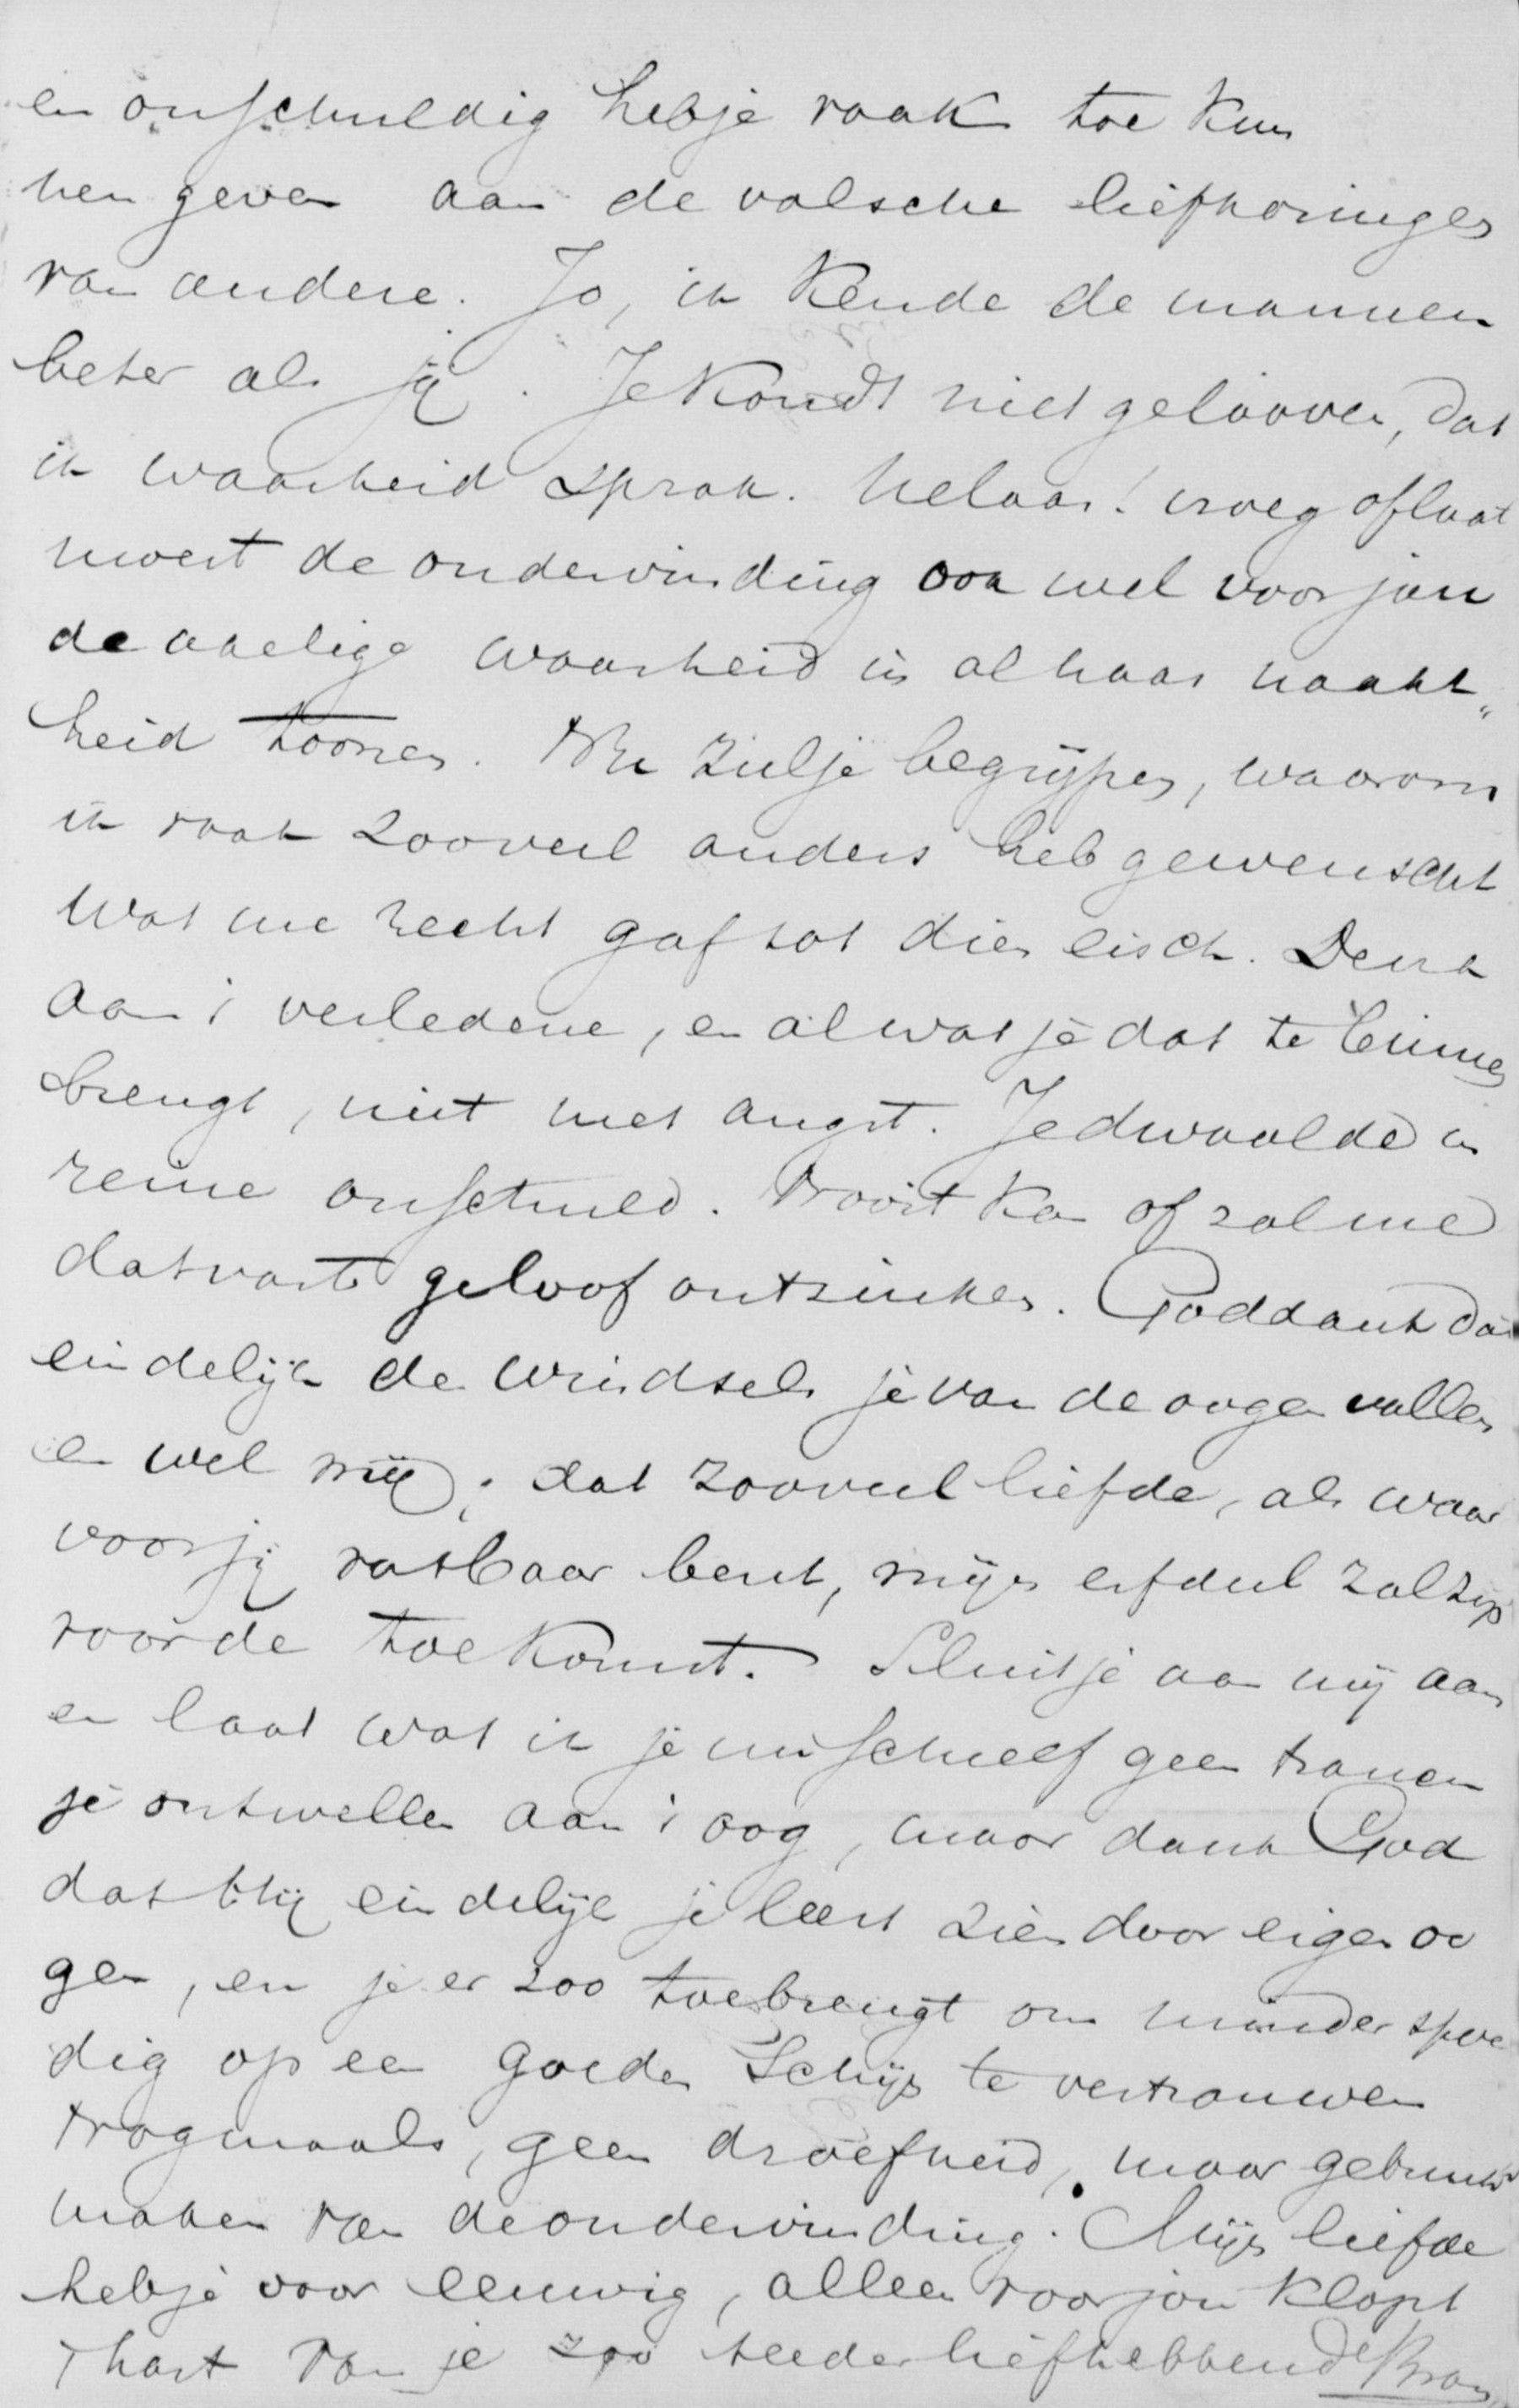 en onschuldig heb je vaak toe kun
nen geven aan de valsche liefkozingen
van andere. Jo, ik kende de mannen
beter als jij. Je kondt niet gelooven, dat
ik waarheid sprak. Helaas! vroeg of laat
moest de ondervinding ook wel voor jou
de akelige waarheid in al haar naakt„
heid toonen. Nu zul je begrijpen, waarom
ik vaak zooveel anders heb gewenscht
Wat me recht gaf tot dien eisch. Denk
aan 't verledene, en al wat je dat te binnen
brengt, niet met angst. Je dwaalde in
reine onschuld. Nooit kan of zal me
dat vaste geloof ontzinken. Goddank dat
eindelijk de windsels je van de oogen vallen
en wel mij; dat zooveel liefde, als waar
voor jij vatbaar bent, mijn erfdeel zal zijn
voor de toekomst. Sluit je aan mij aan
en laat wat ik je nu schreef geen tranen
je ontwellen aan 't oog, maar dank God
dat Hij eindelijk je leert zien door eigen oo
gen, en je er zoo toebrengt om minder spoe
dig op een goeden Schijn te vertrouwen
Nogmaals, geen droefheid, maar gebruik
maken van de ondervinding. Mijn liefde
heb je voor eeuwig, alleen voor jou klopt
't hart van je zoo teeder liefhebbende Bram